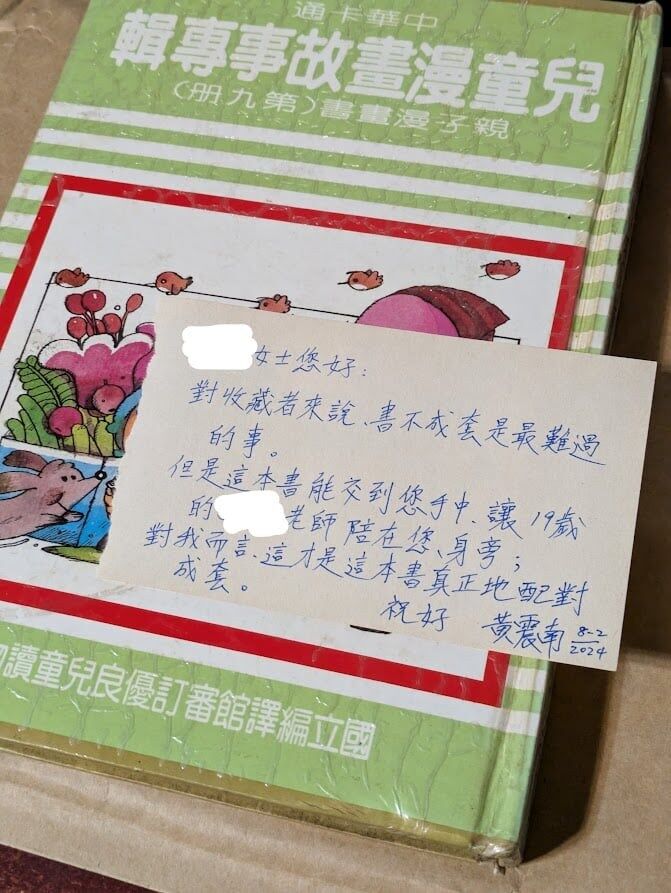 中華卡通
兒童漫畫故事專輯
親子漫畫書(第九册)
女士您好:
對收藏者來說、書不成套是最難過
的事。
但是這本書能交到您手中、讓19歲
的 老師陪在您身旁;
對我而言、這才是這本書真正地配對
成套。
祝好 黃震南 8-2
2024
國立編譯館審訂優良兒童讀